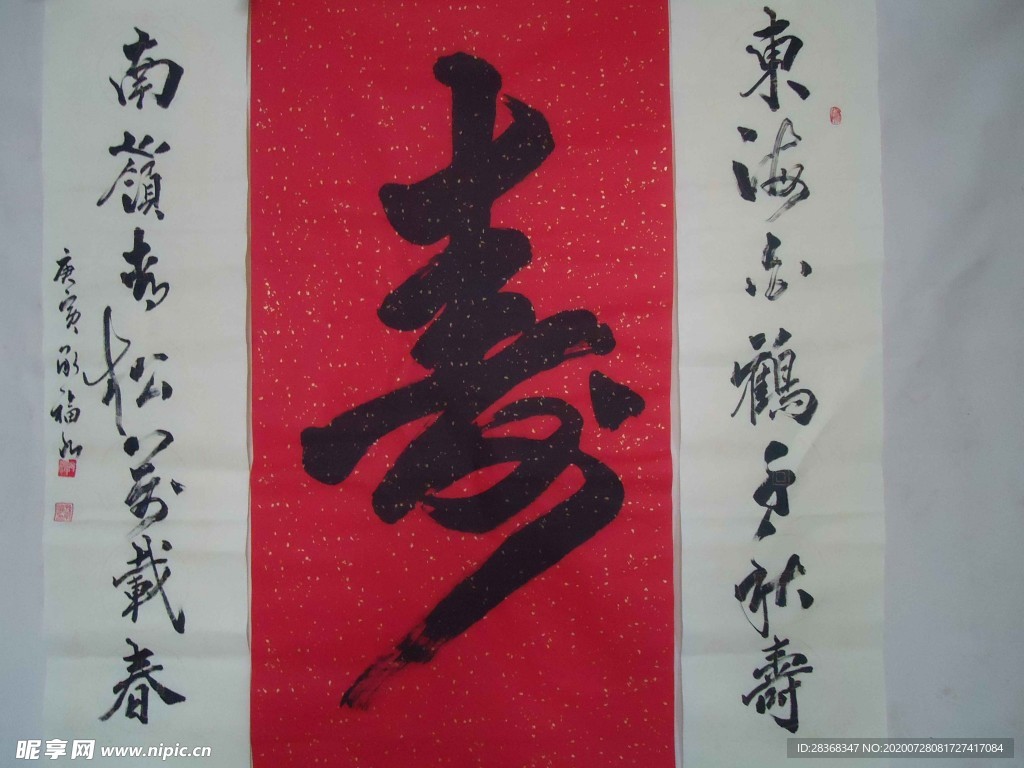 東海白鶴千秋壽
寿
南嶺青松萬載春
庚寅福
昵享网 www.nipic.cn
ID:28368347 NO:20200728081727417084